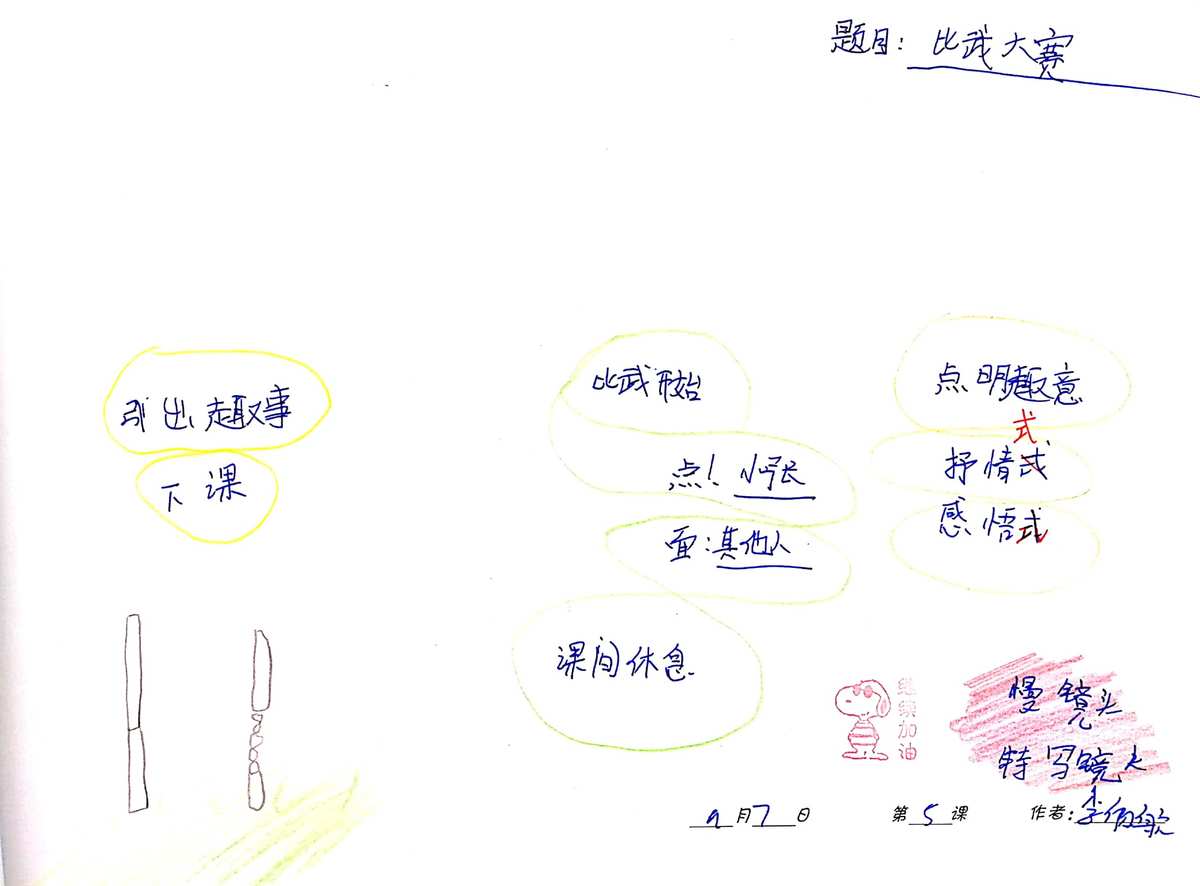 题目：比武大赛
引出趣事
下课
比武开始
点！小张
面：其他人
课间休息
点明趣意
式
抒情式
感悟式
继续加油
慢镜头
特写镜头
9月7日 第5课 作者：李